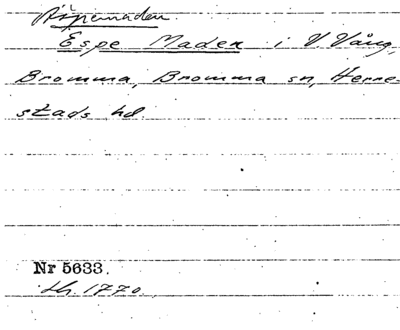 Äspemaden
Espe Maden i V. Vång,
Bromma, Bromma sn, Herre-
stads hd.
Nr 5633.
LH. 1770.